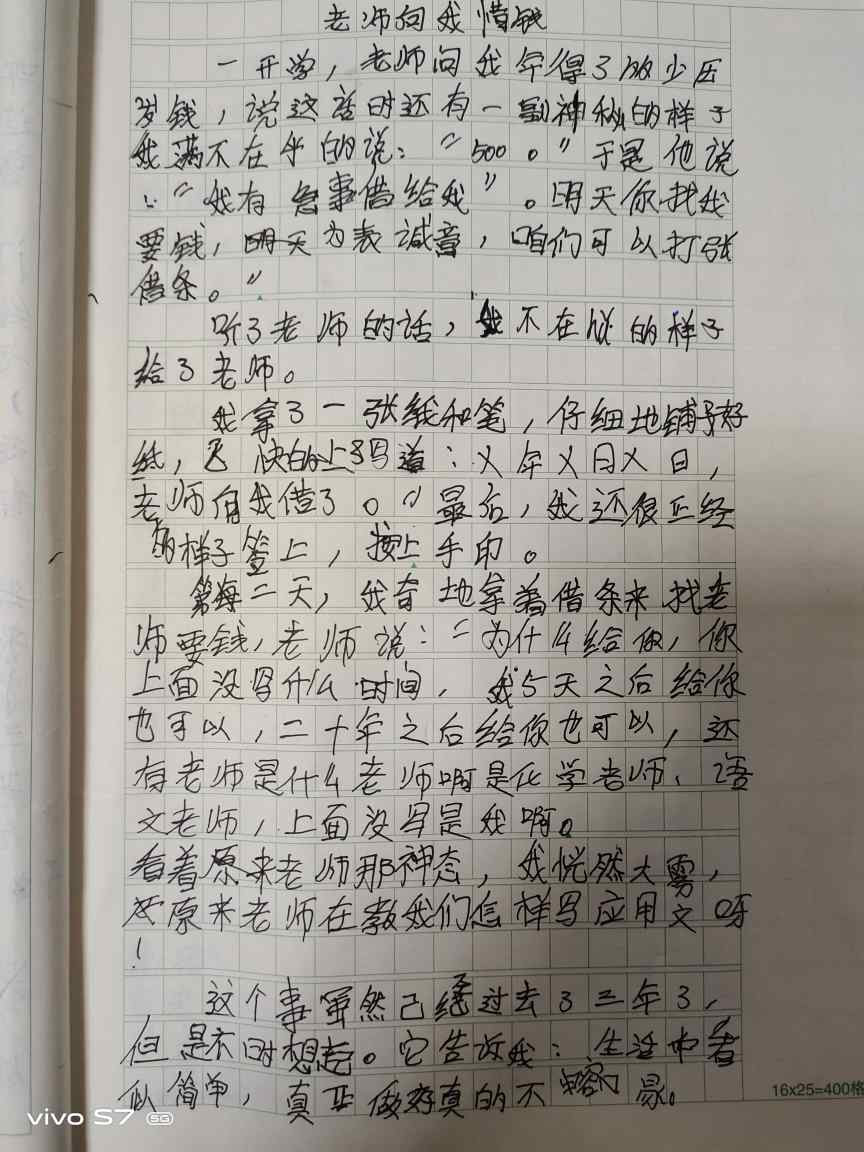 老师向我借钱
一开学，老师问我年得了多少压
岁钱，说这话时还有一副神秘的样子
我满不在乎的说：“500。”于是他说
：“我有急事借给我”。明天你找我
要钱，明天为表诚意，咱们可以打张
借条。”
听了老师的话，我不在的样子
给了老师。
我拿了一张纸和笔，仔细地铺好
纸，飞快的上写道：乂年乂日乂日，
老师向我借了。“最后，我还很正经
的样子签上，按上手印。
第二天，我奇地拿着借条来找老
师要钱，老师说：“为什么给你，你
上面没写什么时间，我5天之后给你
也可以，二十年之后给你也可以，还
有老师是什么老师啊是化学老师、语
文老师，上面没写是我啊。
看着原来老师那神态，我恍然大雾，
原来老师在教我们怎样写应用文呀
！
这个事虽然已经过去了三年了，
但是不时想起。它告诉我：生活中看
似简单，真正做好真的不容易。
16x25=400格
vivo S7 5G